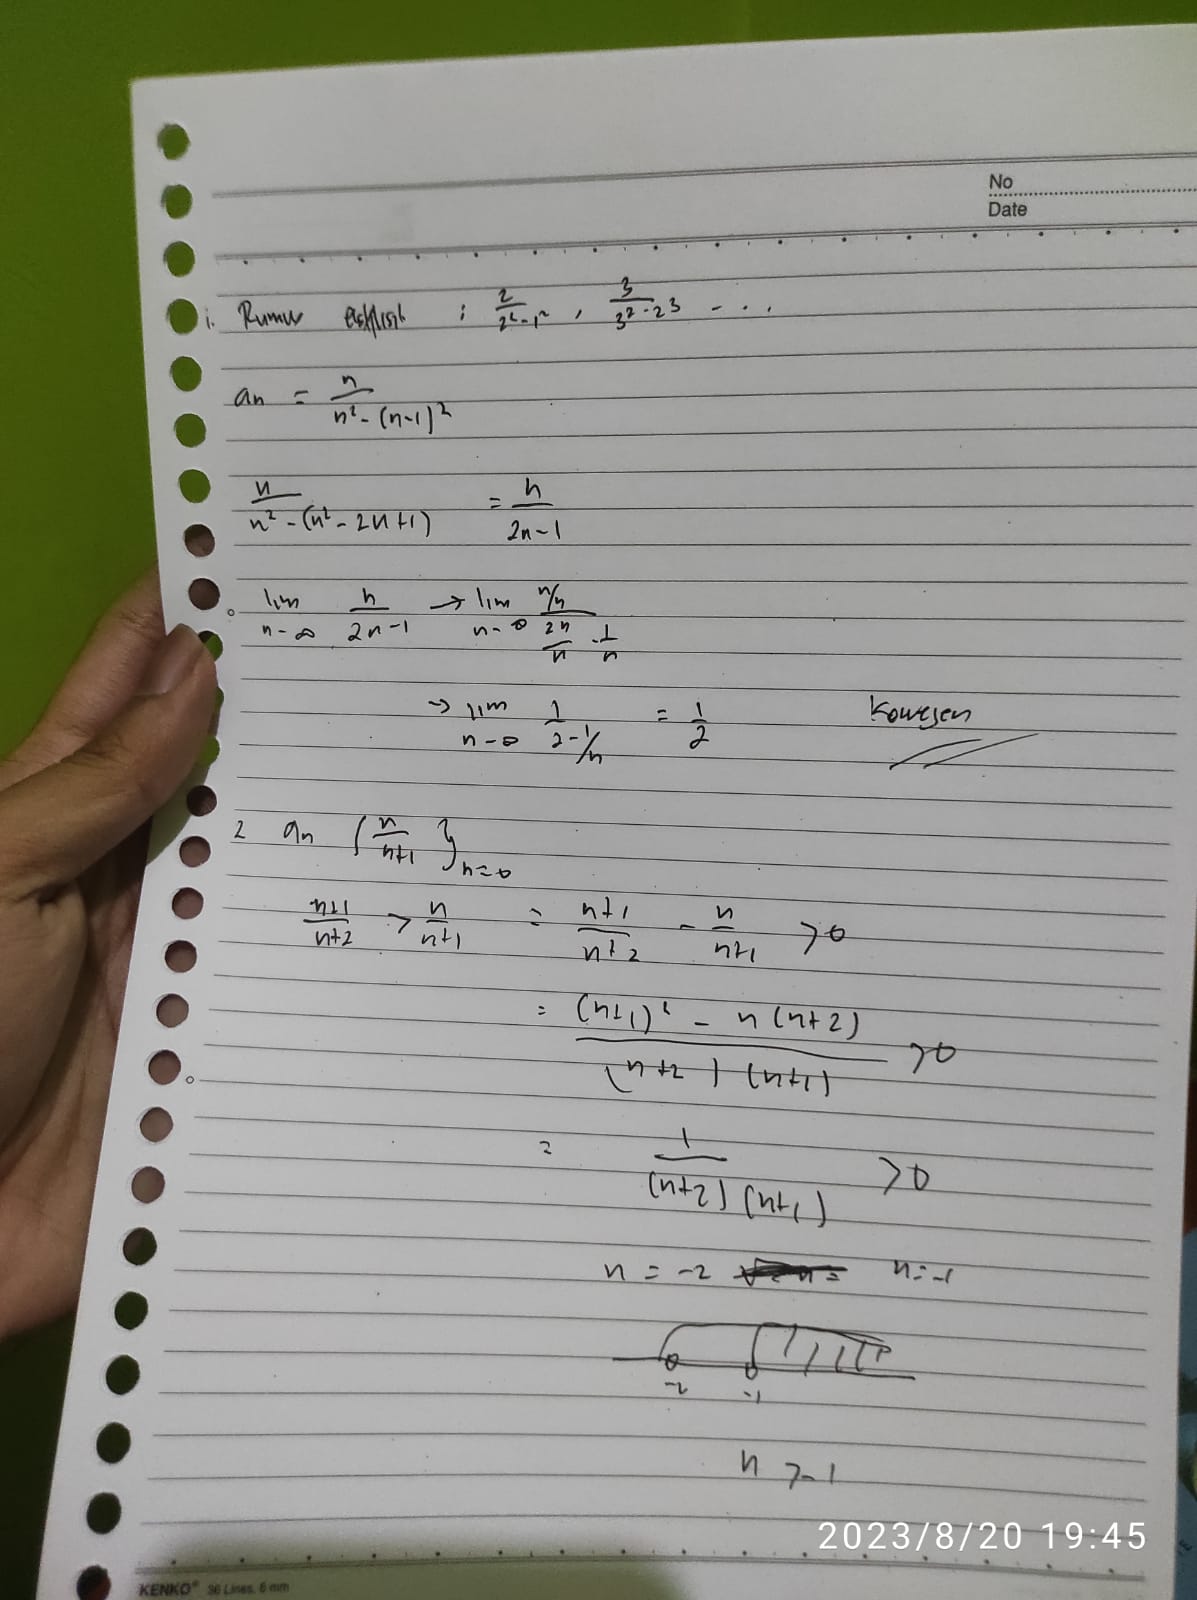 No
Date
1. Rumus : 2/(2²-1²) , 3/(3²-23) - . . .
an = n/(n²-(n-1)²)
n/(n²-(n²-2n+1)) = n/(2n-1)
lim n-∞ n/(2n-1) → lim n-∞ (n/n)/(2n/n - 1/n)
→ lim n-∞ 1/(2-1/n) = 1/2 Kowegen
2 an {n/(n+1)} n=0
(n+1)/(n+2) > n/(n+1) = (n+1)/(n+2) - n/(n+1) >0
= ((n+1)² - n(n+2))/((n+2)(n+1)) >0
= 1/((n+2)(n+1)) >0
n = -2 n=-1
-2 -1
n >-1
2023/8/20 19:45
KENKO® 36 Lines, 6 mm